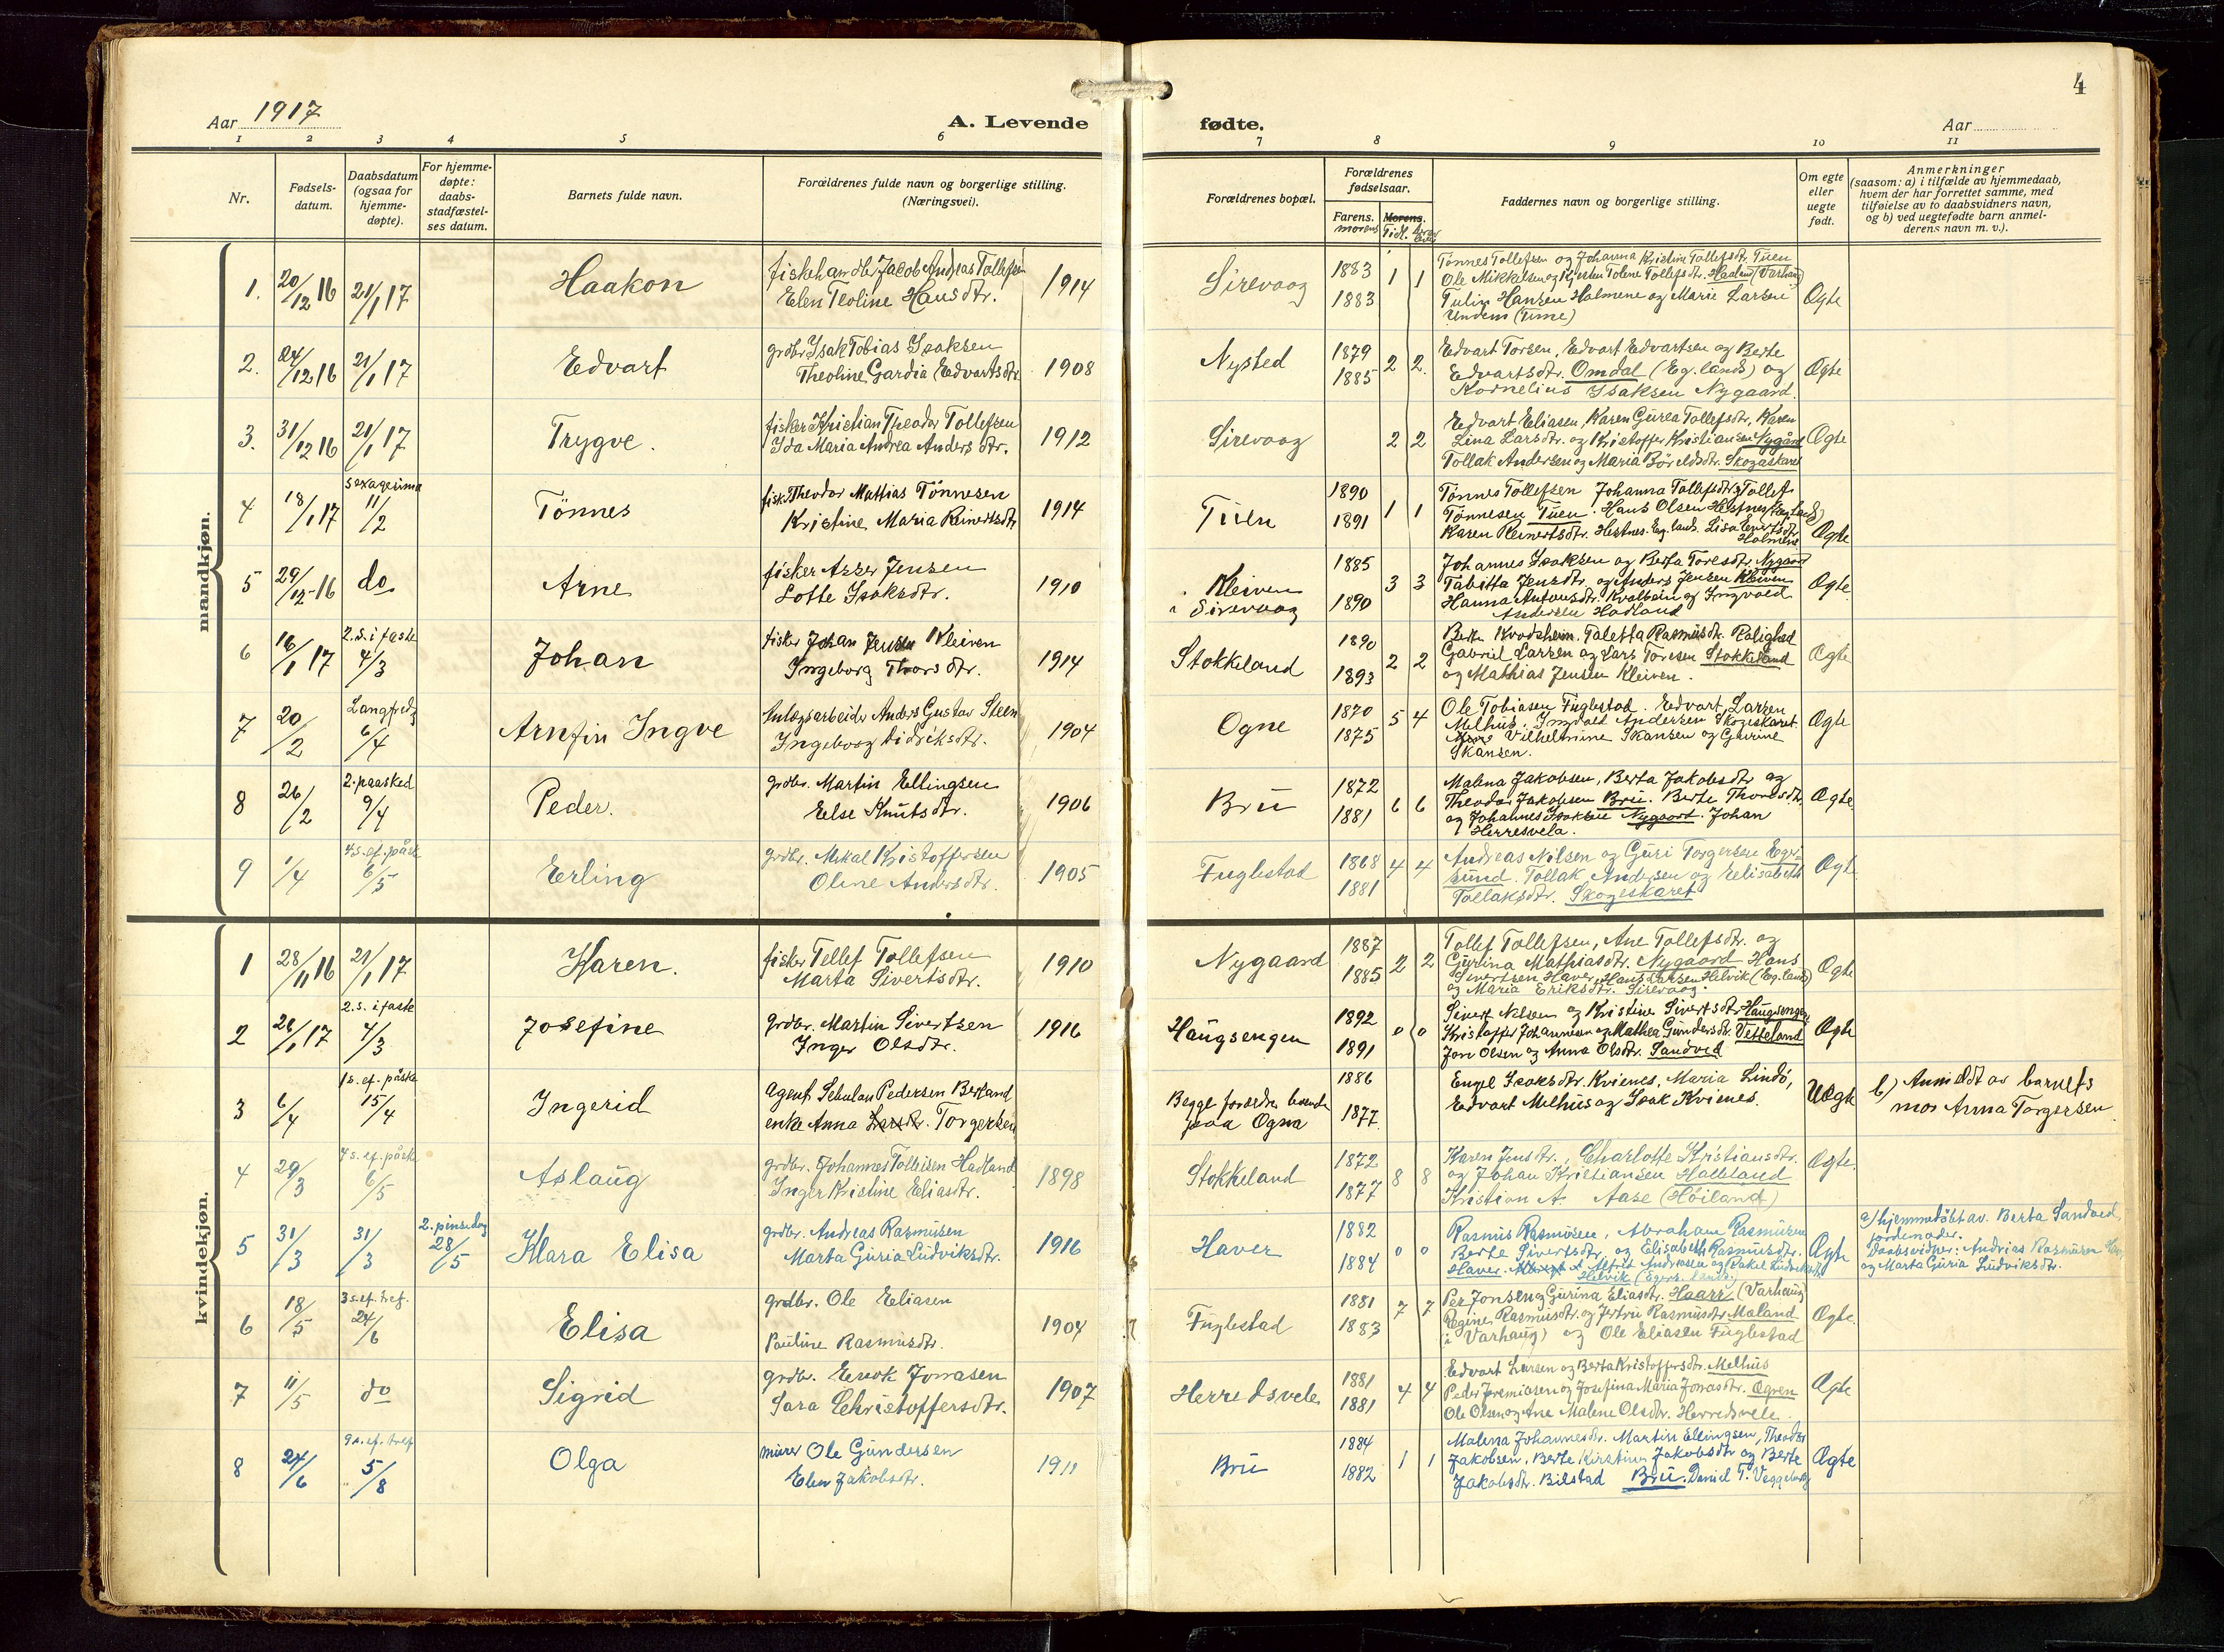 4
Aar 1917
A. Levende
fødte.
Aar
1 2 3 4 5 6 7 8 9 10 11
Nr.
Fødsels-
datum.
Daabsdatum
(ogsaa for
hjemme-
døpte).
For hjemme-
døpte:
daabs-
stadfæstel-
ses datum.
Barnets fulde navn.
Forældrenes fulde navn og borgerlige stilling.
(Næringsvei).
Forældrenes bopæl.
Forældrenes
fødselsaar.
Farens. Morens.
morens Tidl.
Faddernes navn og borgerlige stilling.
Om egte
eller
uegte
født.
Anmerkninger
(saasom: a) i tilfælde av hjemmedaab,
hvem der har forrettet samme, med
tilføielse av to daabsvidners navn,
og b) ved uegtefødte barn anmel-
derens navn m. v.).
mandkjøn.
1. 20/12 16 21/1 17 Haakon
fiskehandler Jacob Andreas Tollefsen
Elen Teoline Hansdtr. 1914
Sirevaag 1883 1883 1 1
Tønnes Tollefsen og Johanna Kristine Tollefsdtr. Tuen
Ole Mikkelsen og Kirsten Tolene Tollefsdtr. Haaland (Varhaug)
Hansen Holmene og Marie Larsen
Undem (Time)
Ægte
2. 24/12 16 21/1 17 Edvart
grdbr Isak Tobias Isaksen
Theoline Gardia Edvartsdtr 1908
Nysted 1879 1885 2 2.
Edvart Torsen, Edvart Edvartsen og Berte
Edvartsdtr. Omdal (Eg. lands) og
Kornelius Isaksen Nygaard.
Ægte
3. 31/12 16 21/1 17 Trygve.
fisker Kristian Theodor Tollefsen
Ida Maria Andrea Andersdtr. 1912
Sirevaag 2 2
Edvart Eliasen, Karen Gurea Tollefsdtr, Karen
Lina Larsdtr. og Kristoffer Kristiansen Nygård
Tollak Andersen og Maria Skogaskaret
Ægte
4 18/1 17 sexagesima 11/2 Tönnes
fisk. Theodor Mathias Tönnesen
Kristine Maria Reinertsdtr 1914
Tuen 1890 1891 1 1
Tönnes Tollefsen Johanna Tollefsdtr og Tollef
Tönnesen Tuen. Hans Olsen Hestnes (Eg. lands)
Karen Reinertsdtr. Hestnes. Eg. lands. Lisa Enertsdtr
Holmene
Ægte
5 29/12-16 do. Arne
fisker Asser Jensen
Lotte Isaksdtr. 1910
Kleiven
i Sirevaag 1885 1890 3 3
Johannes Isaksen og Berta Toresdtr. Nygaard
Tabitta Jensdtr. og Anders Jensen Kleiven
Hanna Antonsdtr. Kvalbein og Ingvald
Andersen Hadland
Ægte
6 16/1 17 2. s. i faste 4/3 Johan
fisker Johan Jensen Kleiven
Ingeborg Thorsdtr. 1914
Stokkeland 1890 1893 2 2
Berte Kvadsheim. Taletta Rasmusdtr. Rolighed
Gabriel Larsen og Lars Toresen Stokkeland
og Mathias Jensen Kleiven.
Ægte
7 20/2 Langfredg 6/4 Arnfin Ingve
Anlægsarbeider Anders Gustav Steen
Ingeborg Didriksdtr. 1904
Ogne 1870 1875 5 4
Ole Tobiasen Fuglestad. Edvart Larsen
Melhus. Ingvald Andersen Skogaskaret.
Vilhelmine Skansen og Gurine
Skansen.
Ægte
8 26/2 2. paasked 9/4 Peder.
grdbr. Martin Ellingsen
Else Knutsdtr. 1906
Bru 1872 1881 6 6
Malena Jakobsen, Berta Jakobsdtr og
Theodor Jakobsen Bru. Berte Thoresdtr.
og Johannes Isaksen Nygaard. Johan
Herresvela.
Ægte
9 1/4 4 s. ef. påsk 6/5 Erling
grdbr. Mikal Kristoffersen
Oline Andersdtr. 1905
Fuglestad 1868 1881 4 4
Andreas Nilsen og Guri Torgersen Eger-
sund. Tollak Andersen og Eelisabeth
Tollaksdtr. Skogeskaret
Ægte
kvindekjøn.
1 28/11 16 21/1 17 Karen.
fisker Tellef Tollefsen
Marta Sivertsdtr. 1910
Nygaard 1887 1885 2 2
Tollef Tollefsen, Ane Tollefsdtr. og
Gurina Mathiasdtr. Nygaard Hans
Sivertsen Haver, Hans Larsen Helvik (Eg. land)
og Maria Eriksdtr. Sirevaag.
Ægte
2 26/1 17 2. s. i faste 4/3 Josefine
grdbr. Martin Sivertsen
Inger Olsdtr. 1916
Haugsengen 1892 1891 0 0
Sivert Nilsen og Kristine Sivertsdtr Haugsengen
Kristoffer Johannesen og Mathea Gundersdtr Vetteland
Jon Olsen og Anna Olsdtr. Sandved
Ægte
3 6/4 1 s. ef. påske 15/4 Ingerid
Agent Sebulon Pedersen Berland
enke Anna Torgersen
Begge forældre boende
paa Ogna 1886 1877.
Engel Isaksdtr. Kvienes, Maria Lindö,
Edvart Melhus og Isak Kvienes.
Uægte
b) Anmeldt av barnets
mor Anna Torgersen
4 29/3 4 s. ef. påske 6/5 Aslaug
grdbr. Johannes Tolleisen Hadland
Inger Kristine Eliasdtr. 1898
Stokkeland 1872 1877 8 8
Karen Jensdtr., Charlotte Kristiansdtr.
og Johan Kristiansen Halleland
Kristian A. Aase (Höiland)
Ægte.
5 31/3 31/3 2. pinsedag 28/5 Klara Elisa
grdbr. Andreas Rasmusen
Marta Guria Ludviksdtr. 1916
Haver 1882 1884 0 0
Rasmus Rasmusen, Abraham Rasmusen
Berte Sivertsdtr. og Elisabeth Rasmusdtr.
Haver. Alfred Andreasen og Rakel Ludviksdtr
Helvik (Egers. lands.)
Ægte
a) hjemmedöbt av. Berta Sandved,
jordemoder.
Daabsvidner: Andreas Rasmusen
og Marta Guria Ludviksdtr.
6 18/5 3 s. ef. tref. 24/6 Elisa
grdbr. Ole Eliasen
Pauline Rasmusdtr. 1904
Fuglestad 1881 1883 7 7
Per Jonsen og Gurina Eliasdtr. Haarr (Varhaug)
Regine Rasmusdtr. og Jertru Rasmusdtr Maland
(i Varhaug) og Ole Eliasen Fuglestad
Ægte.
7 11/5 do Sigrid
grdbr. Enok Jonasen
Sara Christoffersdtr. 1907
Herredsvele 1881 1881 4 4
Edvart Larsen og Berta Kristoffersdtr. Melhus
Peder Jeremiasen og Josefina Maria Jonasdtr. Ogren
Ole Olsen og Ane Malene Olsdtr. Herredsvele.
Ægte
8 24/6 9 s. ef. tref 5/8 Olga
murer Ole Gundersen
Elen Jakobsdtr. 1911
Bru 1884 1882 1 1
Malena Johannesdtr. Martin Ellingsen, Theodor
Jakobsen, Berte Kirstine Jakobsdtr og Berte
Jakobsdtr. Bilstad Bru. Daniel T.
Ægte